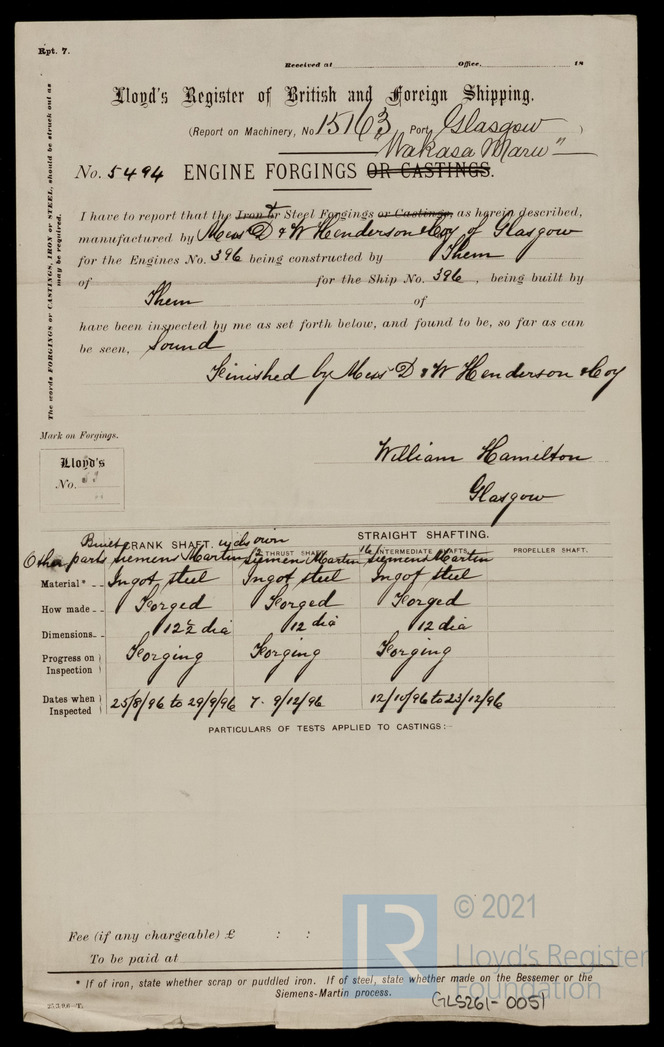 Rpt. 7.
Received at Office. 18
Lloyd's Register of British and Foreign Shipping.
(Report on Machinery, No. 15163 Port Glasgow )
"Wakasa Maru"
No. 5494 ENGINE FORGINGS OR CASTINGS.
The words FORGINGS or CASTINGS, IRON or STEEL, should be struck out as may be required.
I have to report that the Iron or Steel Forgings or Castings, as herein described,
manufactured by Mess D & W Henderson & Coy of Glasgow
for the Engines No. 396 being constructed by Them
of for the Ship No. 396, being built by
Them of
have been inspected by me as set forth below, and found to be, so far as can
be seen, Sound
Finished by Mess D & W Henderson & Coy
Mark on Forgings.
Lloyd's
No.
William Hamilton
Glasgow
Built CRANK SHAFT. STRAIGHT SHAFTING.
THRUST SHAFT. INTERMEDIATE SHAFTS. PROPELLER SHAFT.
Other parts Siemens Martin Siemens Martin Siemens Martin
Material* Ingot steel Ingot steel Ingot steel
How made Forged Forged Forged
Dimensions 12½ dia 12 dia 12 dia
Progress on Inspection Forging Forging Forging
Dates when Inspected 25/8/96 to 29/9/96 7. 9/12/96 12/10/96 to 23/12/96
PARTICULARS OF TESTS APPLIED TO CASTINGS:—
Fee (if any chargeable) £ : :
To be paid at
* If of iron, state whether scrap or puddled iron. If of steel, state whether made on the Bessemer or the
Siemens-Martin process.
GLS261-0051
LR
© 2021
Lloyd's Register
Foundation